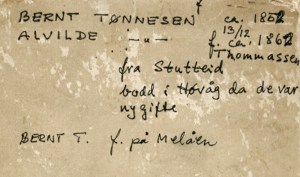 f
BERNT TØNNESEN ca. 1852
ALVILDE —"— f. ca. 13/12 1862
Thommassen
fra Stutteid
bodd i Høvåg da de var
nygifte
BERNT T. f. på Melåen